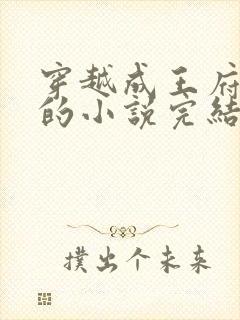 穿越成王府
的小説完結
撲出个未来